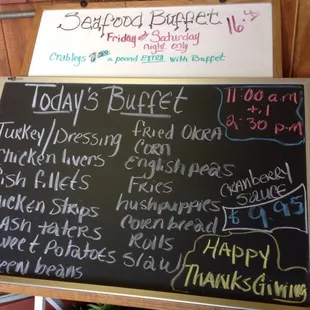 Seafood Buffet
Friday and Saturday
night only
Crablegs a pound EXTRA with Buffet
Today's Buffet
11:00 am
2:30 p.m
Turkey/Dressing
Chicken livers
ish fillets
icken Strips
ash taters
weet Potatoes
een beans
fried OkRA
CoRN
English peas
Fries
hushpuppies
Cornbread
Rolls
Slaw
CRANBERRY
SAUCE
$ 9.95
HAPPY
THANKSGiving